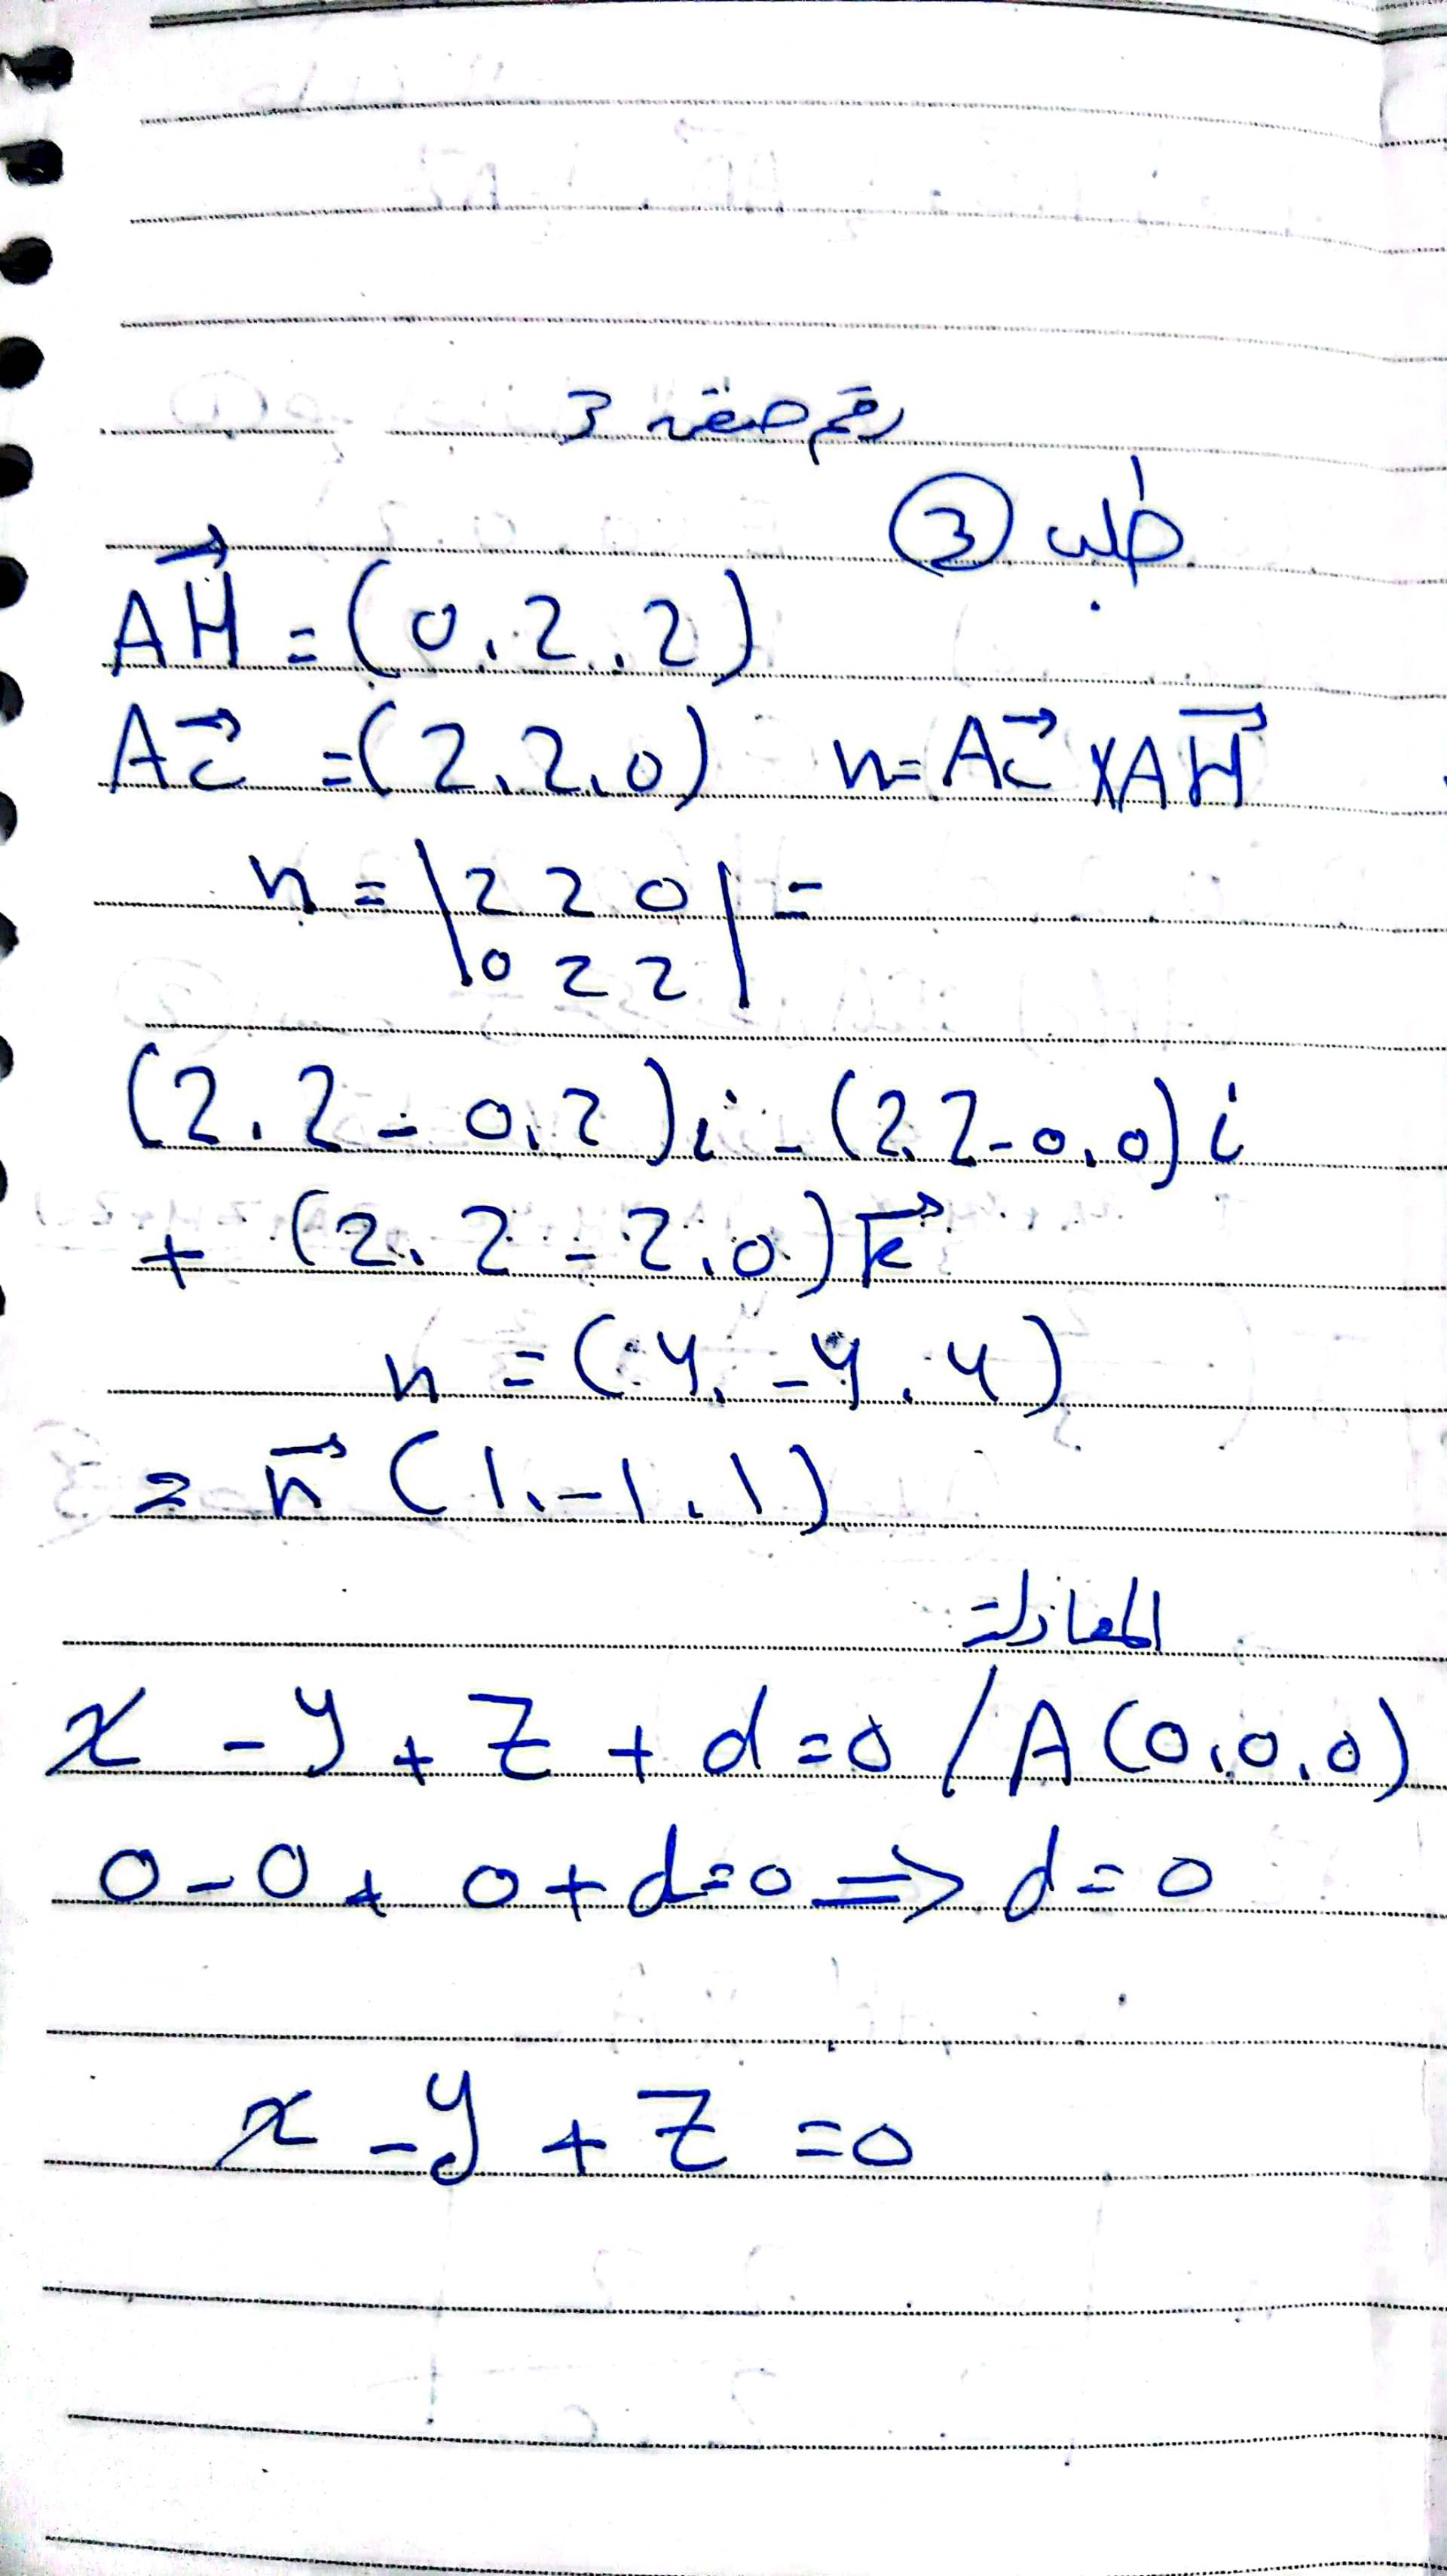 رقم صفحه 3
طلب ③
AH⃗ = (0, 2, 2)
AC⃗ = (2, 2, 0) n = AC⃗ × AH⃗
n = | 2 2 0 | =
0 2 2
(2. 2 - 0. 2) i - (2. 2 - 0. 0) i
+ (2. 2 - 2. 0) k⃗
n = (4, -4, 4)
= n⃗ (1, -1, 1)
المعادلة
x - y + z + d = 0 / A (0, 0, 0)
0 - 0 + 0 + d = 0 ⇒ d = 0
x - y + z = 0